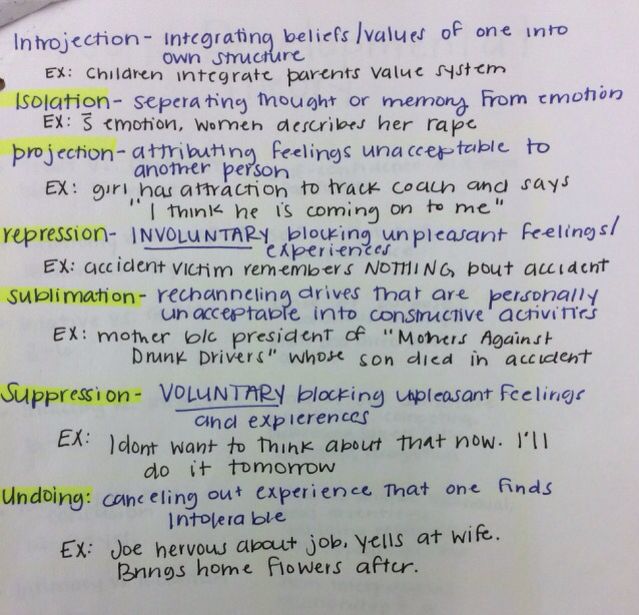 Introjection - integrating beliefs/values of one into
own structure
EX: children integrate parents value system
Isolation - seperating thought or memory from emotion
EX: s̄ emotion, women describes her rape
projection - attributing feelings unacceptable to
another person
EX: girl has attraction to track coach and says
"I think he is coming on to me"
repression - INVOLUNTARY blocking unpleasant feelings/
experiences
EX: accident victim remembers NOTHING bout accident
sublimation - rechanneling drives that are personally
unacceptable into constructive activities
EX: mother b/c president of "Mothers Against
Drunk Drivers" whose son died in accident
Suppression - VOLUNTARY blocking unpleasant feelings
and expierences
EX: I dont want to think about that now. I'll
do it tomorrow
Undoing: canceling out experience that one finds
Intolerable
EX: Joe nervous about job, yells at wife.
Brings home flowers after.